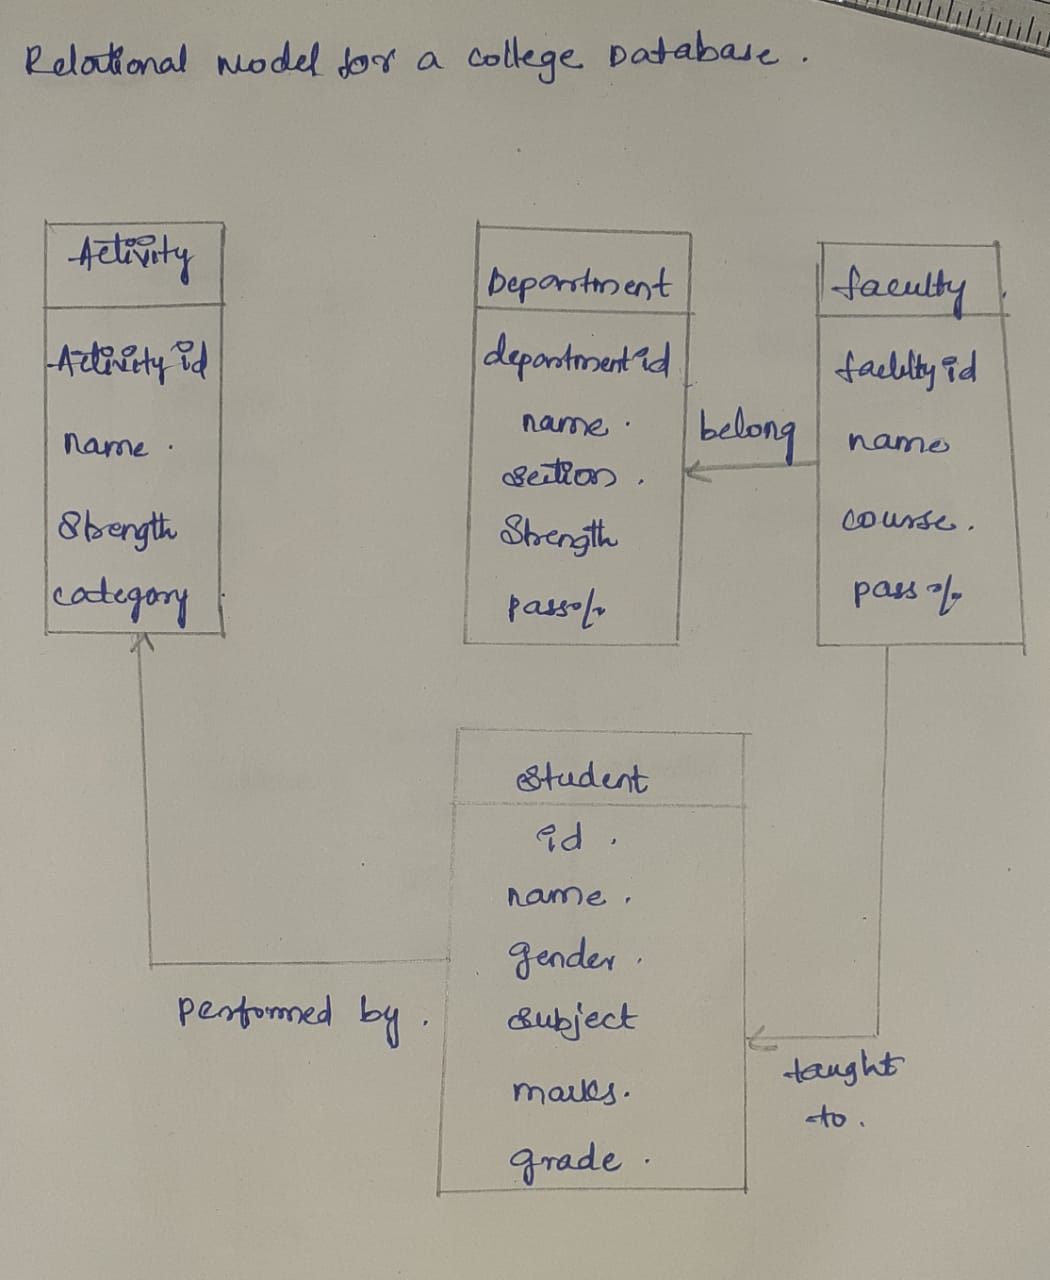 Relational model for a college Database.
Activity
Activity id
name.
Strength
category
Department
department id
name.
section.
Strength
pass%
belong
faculty
faculty id
name
course.
pass %
Student
id.
name.
gender.
subject
marks.
grade.
performed by.
taught
to.